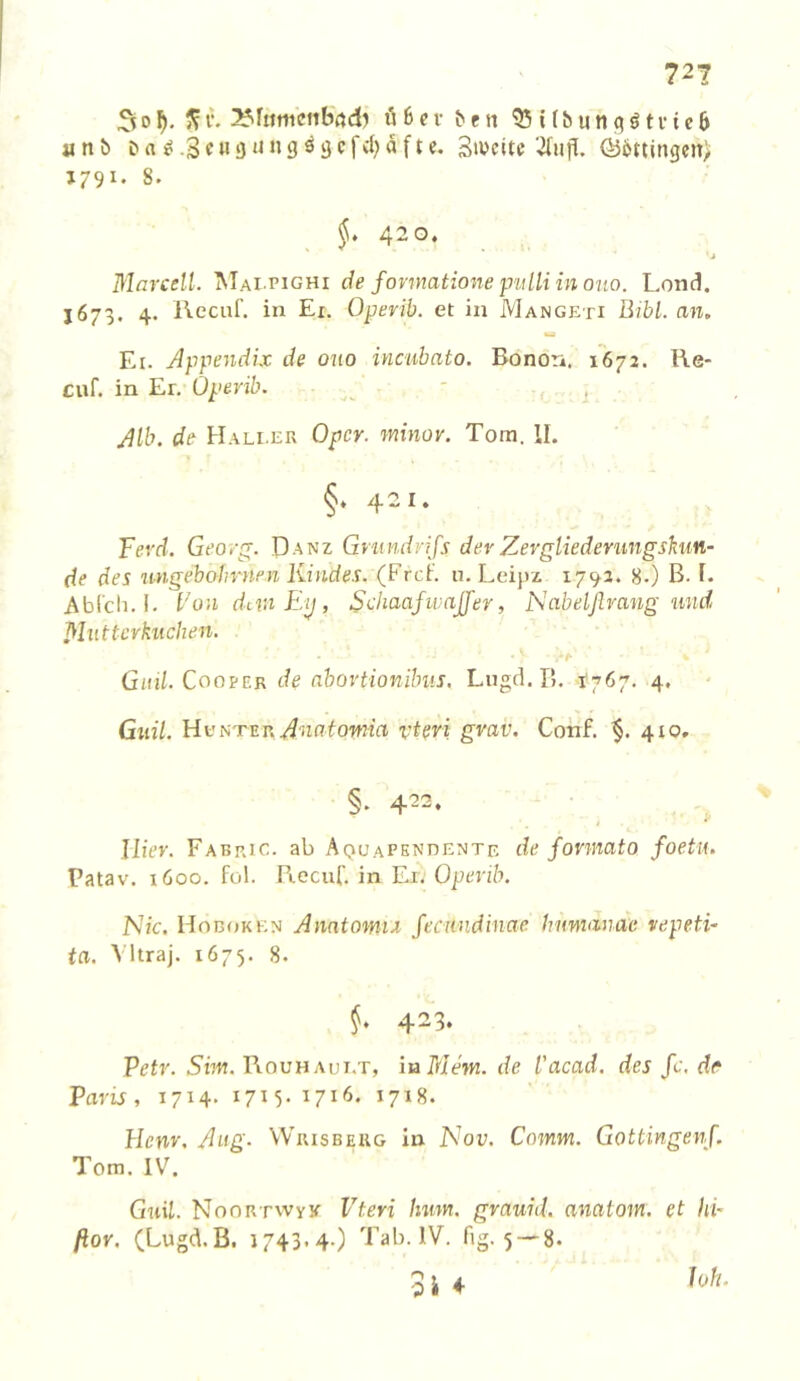 727
Joh. Fr. Blumenbach über den Bildungstrieb
und das Zeugungsgeschäfte. Zweite Aufl. Göttingen,
1791. 8.
§. 420.
Marcell. MALPIGHI de formatione pulli in ouo. Lond.
1673. 4. Recuſ. in EI. Operib. et in MANGETI Bibl. an.
EI. Appendix de ouo incubato. Bonon. 1672. Re-
cuſ. in Er. Operib.
Alb. de HALLER Oper. minor. Tom. II.
§. 421.
Ferd. Georg. DANZ Grundriſs der Zergliederungskun-
de des ungebohrnen Kindes. (Frcf. u. Leipz 1792. 8.) B. I.
Abſch. I. Von dem Ey, Schaafwaſſer, Nabelſtrang und
Mutterkuchen.
Guil. COOPER de abortionibus. Lugd. B. 1767. 4.
Guil. HUNTER Anatomia vteri grav. Conf. §. 410.
§. 422.
Hier. FABRIC. ab AQUAPENDENTE de formato foetu.
Patav. 1600. fol. Recuſ. in EI. Operib.
Nic. HOBOKEN Anatomia ſecundinae humanae repeti-
ta. Vltraj. 1675. 8.
§. 423.
Petr. Sim. ROUHAULT, in Mém. de l'acad. des ſc. de
Paris, 1714. 1715. 1716. 1718.
Henr. Aug. WRISBERG in Nov. Comm. Gottingenſ.
Tom. IV.
Guil. NOORTWYK Vteri hum. grauid. anatom. et hi-
ſtor. (Lugd. B. 1743. 4.) Tab. IV. fig. 5—8.
Zz 4 Ioh.